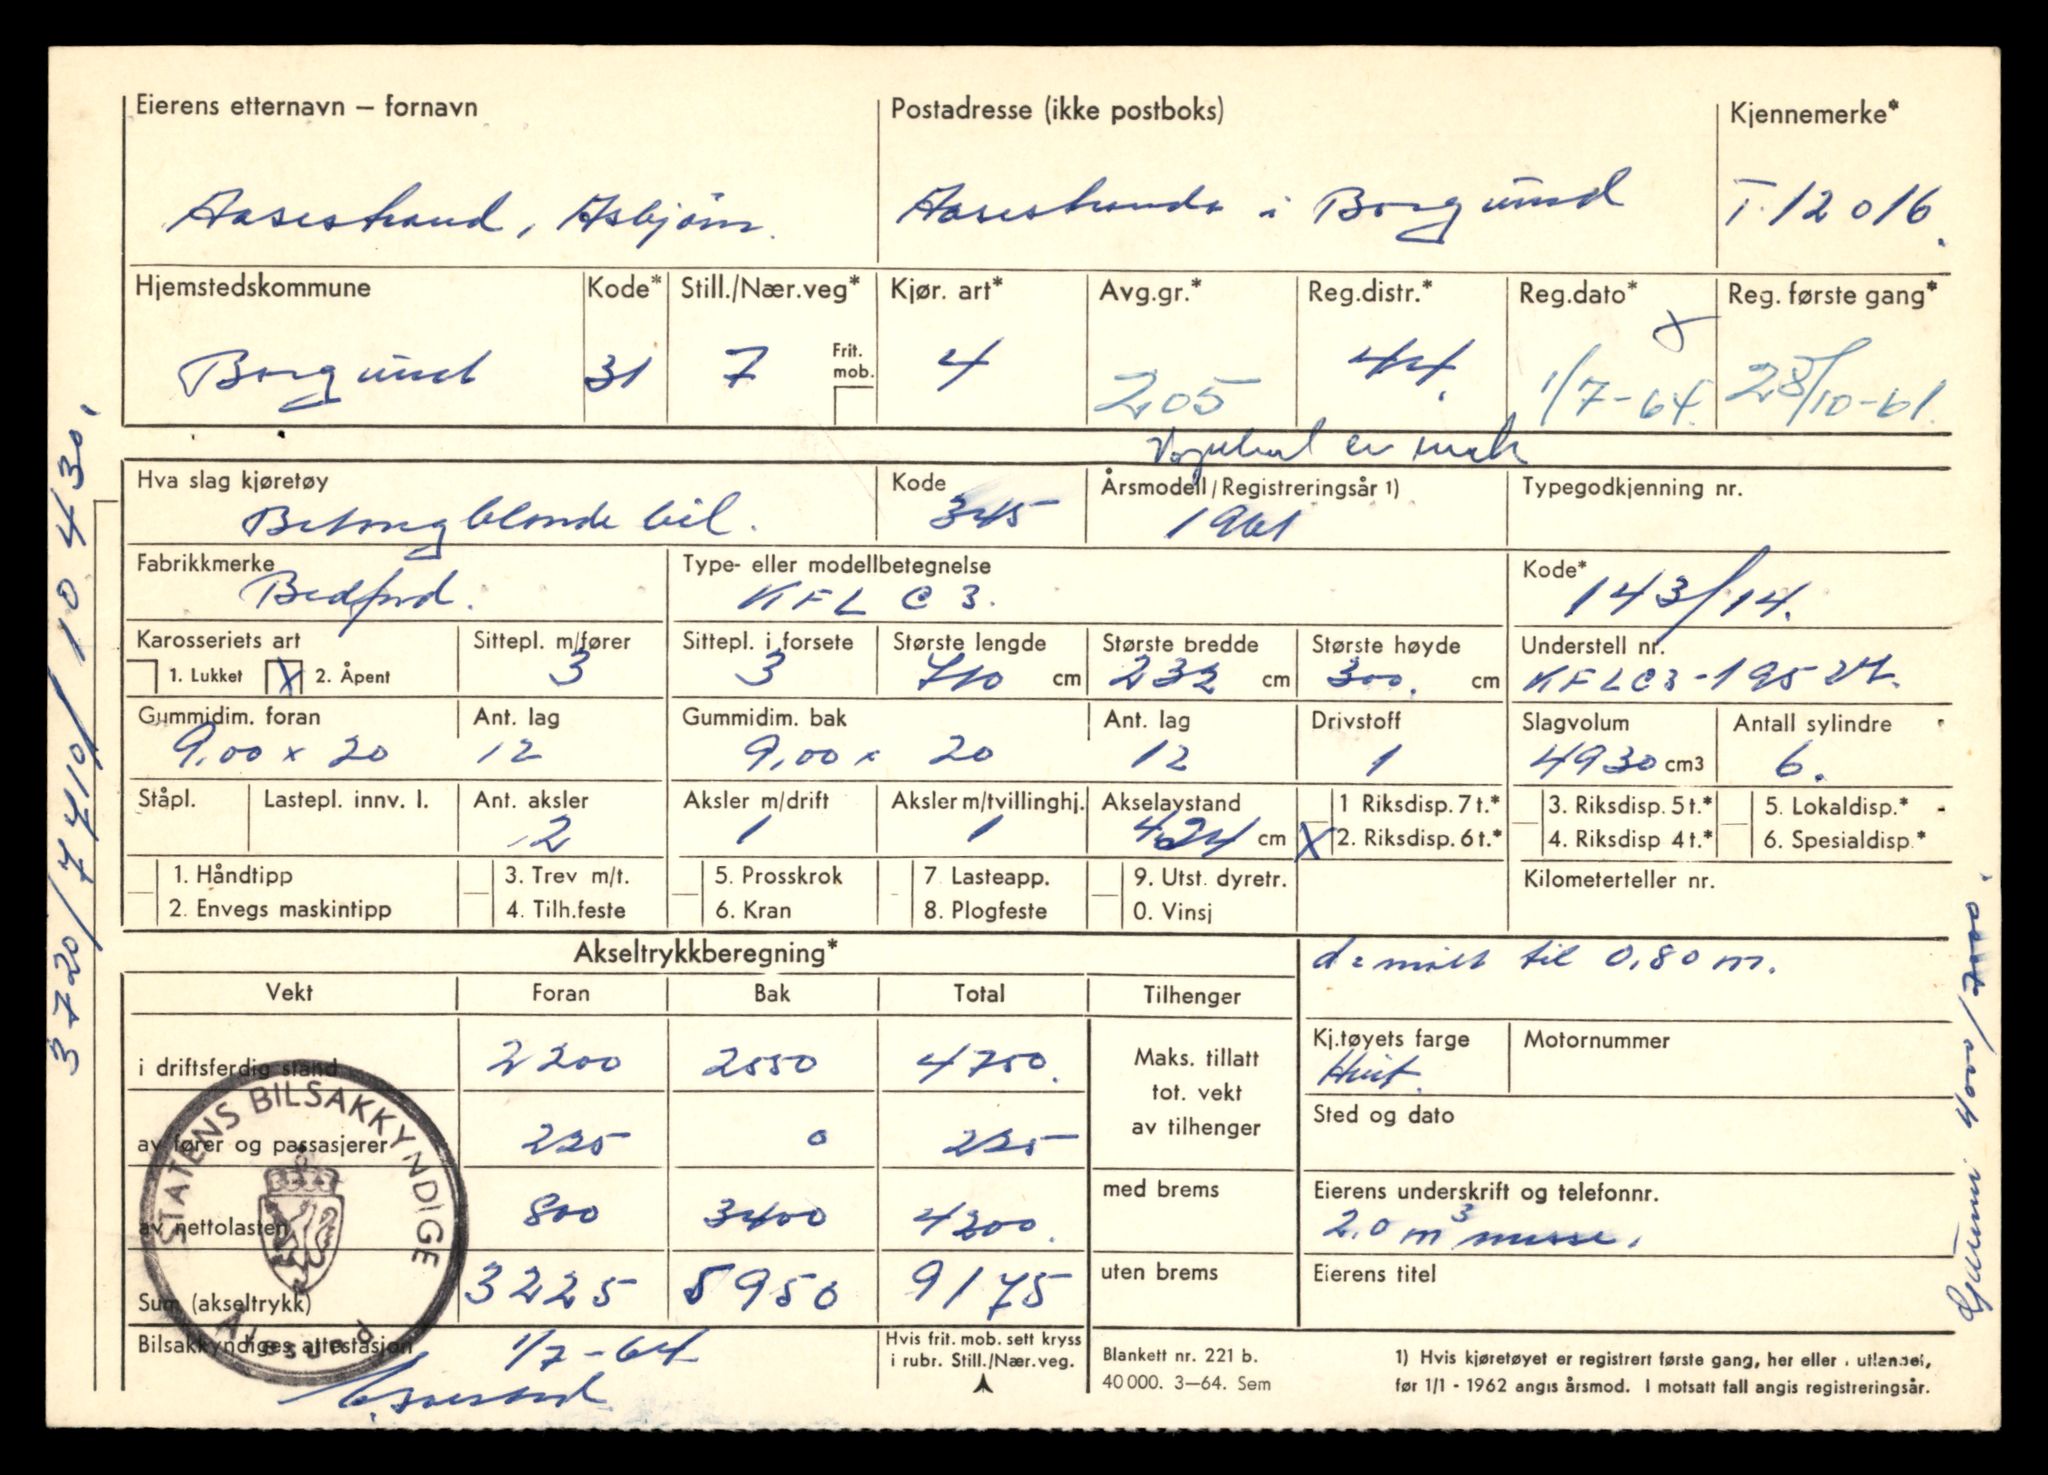 Eierens etternavn – fornavn Postadresse (ikke postboks) Kjennemerke*
Aasestrand, Asbjörn. Aasestranda i Borgund T-12016.
Hjemstedskommune Kode* Still./Nær.veg* Kjør. art* Avg.gr.* Reg.distr.* Reg.dato* Reg. første gang*
Borgund 31 7 Frit. mob. 4 205 44. 1/7-64. 28/10-61.
er
Hva slag kjøretøy Kode Årsmodell/Registreringsår 1) Typegodkjenning nr.
Betongblande bil. 345 1961
Fabrikkmerke Type- eller modellbetegnelse Kode*
Bedford. KFL C 3. 143/14.
Karosseriets art Sittepl. m/fører Sittepl. i forsete Største lengde Største bredde Største høyde Understell nr.
1. Lukket X 2. Åpent 3 3 710 cm 232 cm 300. cm KFLC3-19524.
Gummidim. foran Ant. lag Gummidim. bak Ant. lag Drivstoff Slagvolum Antall sylindre
9,00 x 20 12 9,00 x 20 12 1 4930 cm3 6.
Ståpl. Lastepl. innv. l. Ant. aksler Aksler m/drift Aksler m/tvillinghj. Akselavstand 1 Riksdisp. 7 t.* 3. Riksdisp. 5 t.* 5. Lokaldisp.*
2 1 1 424 cm X 2. Riksdisp. 6 t.* 4. Riksdisp 4 t.* 6. Spesialdisp.*
1. Håndtipp 3. Trev m/t. 5. Prosskrok 7. Lasteapp. 9. Utst. dyretr. Kilometerteller nr.
2. Envegs maskintipp 4. Tilh.feste 6. Kran 8. Plogfeste 0. Vinsj
Akseltrykkberegning* d = målt til 0,80 m.
Vekt Foran Bak Total Tilhenger
i driftsferdig stand 2200 2550 4750.
Maks. tillatt tot. vekt av tilhenger
Kj.tøyets farge Motornummer
Hvit.
Sted og dato
av fører og passasjerer 225 0 225
av nettolasten 800 3400 4200.
med brems
Eierens underskrift og telefonnr.
2,0 m³ masse.
Sum (akseltrykk) 3225 5950 9175
uten brems
Eierens titel
Bilsakkyndiges attestasjon 1/7-64
Hvis frit. mob. sett kryss
i rubr. Still./Nær.veg.
Blankett nr. 221 b.
40 000. 3–64. Sem
1) Hvis kjøretøyet er registrert første gang, her eller i utlandet,
før 1/1 - 1962 angis årsmod. I motsatt fall angis registreringsår.
STATENS BILSAKKYNDIGE
Ålesund
3720/7710/10430.
Gummi 4000/7000.